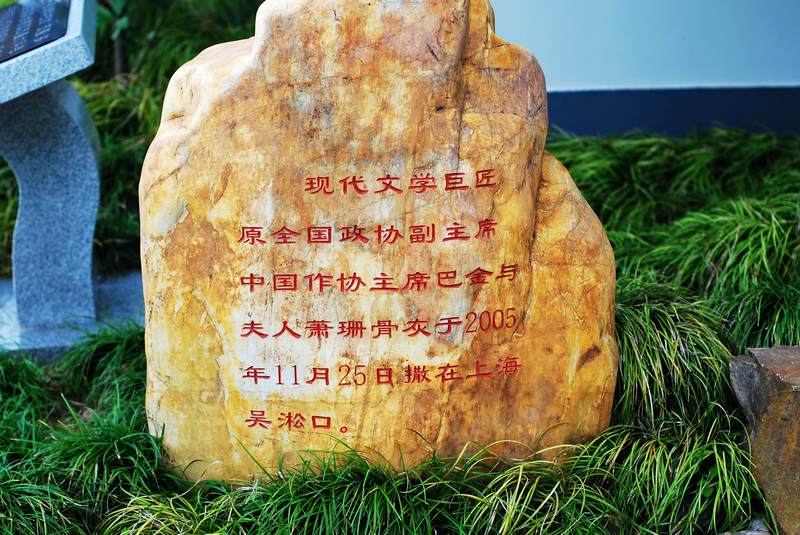 现代文学巨匠
原全国政协副主席
中国作协主席巴金与
夫人萧珊骨灰于2005
年11月25日撒在上海
吴淞口。